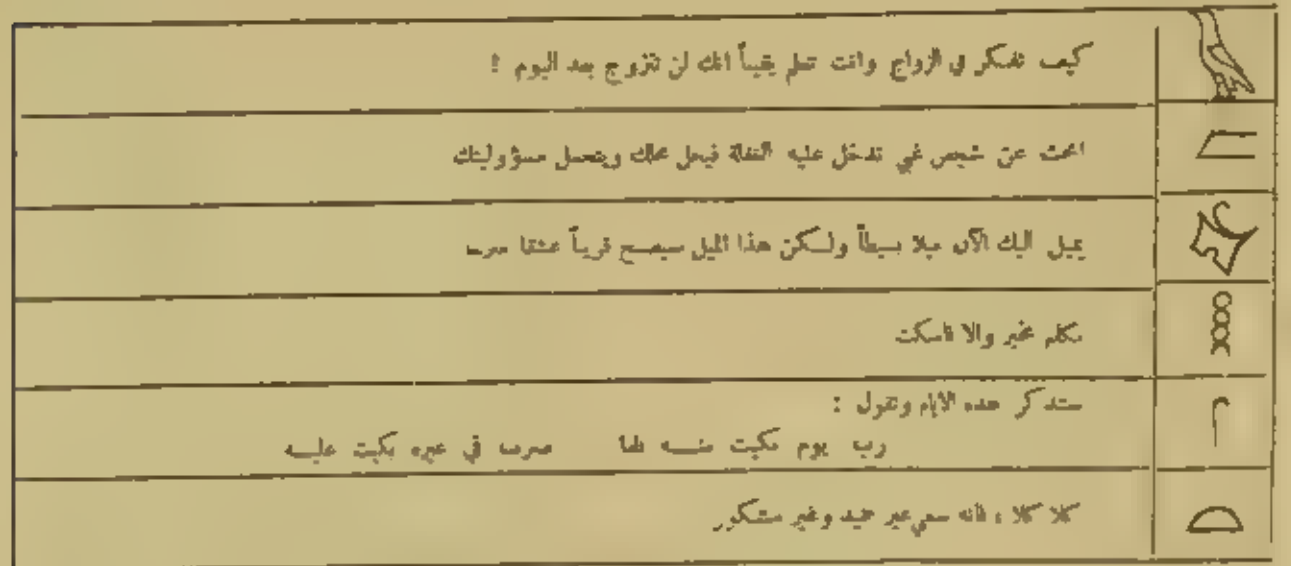 كيف تفكر في الزواج وانت تعلم يقيناً انك لن تتزوج بعد اليوم !
ابحث عن شخص غني تدخل عليه الغفلة فيحل محلك ويتحمل مسؤوليتك
يميل اليك الآن ميلا بسيطاً ولكن هذا الميل سيصبح قريباً عشقا
تكلم بخير والا فاسكت
ستذكر هذه الايام وتقول :
رب يوم بكيت منه فلما صرت في غيره بكيت عليه
كلا كلا ، فانه سعي غير حميد وغير مشكور